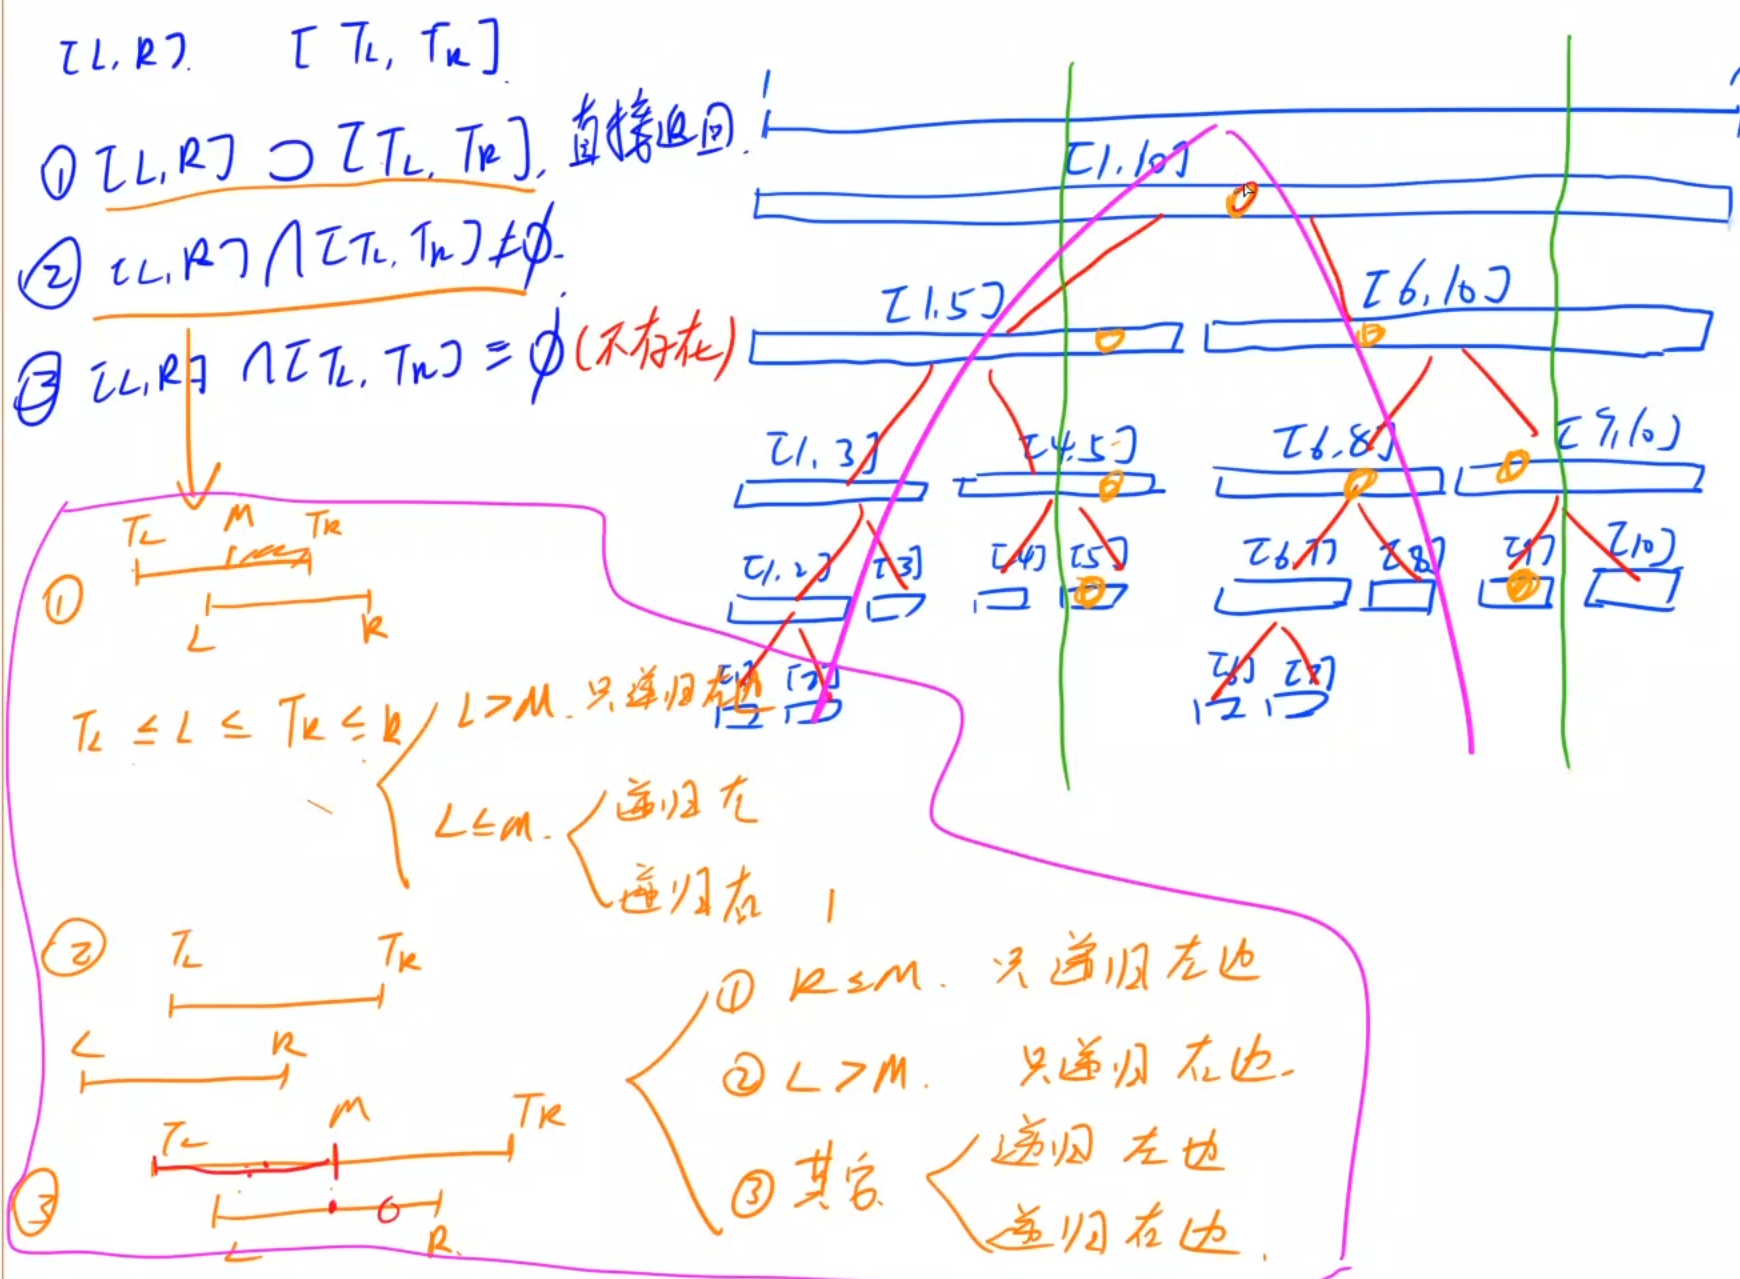 [L,R] [TL, TR]
① [L,R] ⊃ [TL, TR], 直接返回.
② [L,R] ∩ [TL, TR] ≠ ∅.
③ [L,R] ∩ [TL, TR] = ∅ (不存在)
① TL M TR
L R
TL ≤ L ≤ TR ≤ R
L > M. 只递归右边
L ≤ M.
递归左
递归右
② TL TR
L R
③ TL M TR
L R.
① R ≤ M. 只递归左边
② L > M. 只递归右边.
③ 其它
递归左边
递归右边.
1
[1,10]
[1,5] [6,10]
[1,3] [4,5] [6,8] [9,10]
[1,2] [3] [4] [5] [6,7] [8] [9] [10]
[1] [2] [6] [7]